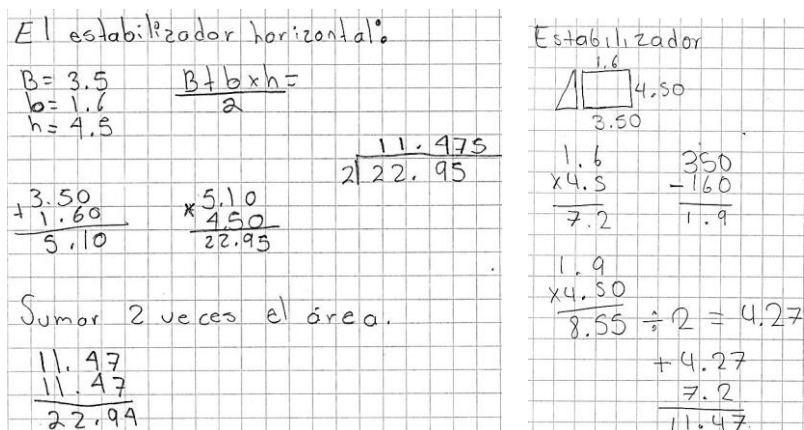 El estabilizador horizontal:
B = 3.5
b = 1.6
h = 4.5
B + b x h =
2
11.475
2 22.95
+ 3.50
1.60
5.10
x 5.10
4.50
22.95
Sumar 2 veces el área.
11.47
11.47
22.94
Estabilizador
1.6
4.50
3.50
1.6
x4.5
7.2
350
-160
1.9
1.9
x4.50
8.55 ÷ 2 = 4.27
+ 4.27
7.2
11.47